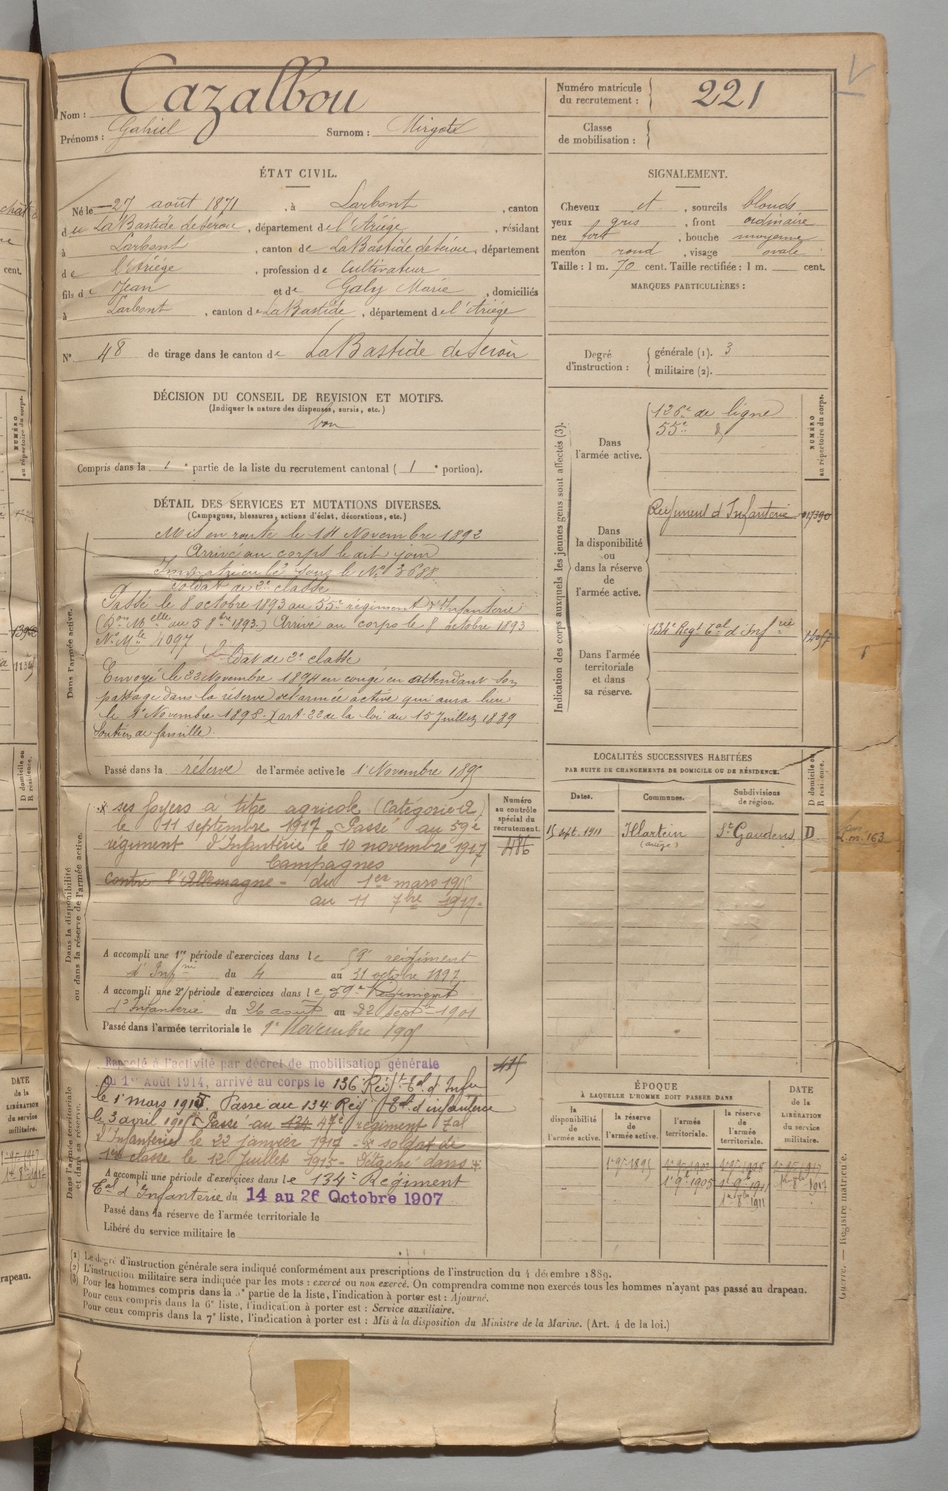 Nom : Cazalbou
Prénoms : Gabriel Surnom : Mirgote
Numéro matricule du recrutement : 221
Classe de mobilisation :
ÉTAT CIVIL.
Né le 27 août 1871, à Larbont, canton
du La Bastide de Sérou, département de l'Ariège, résidant
à Larbont, canton de La Bastide de Sérou, département
de l'Ariège, profession de Cultivateur
fils de Jean et de Galy Marie, domiciliés
à Larbont, canton de La Bastide, département de l'Ariège
N° 48 de tirage dans le canton de La Bastide de Serou
SIGNALEMENT.
Cheveux et, sourcils blonds
yeux gris, front ordinaire
nez fort, bouche moyenne
menton rond, visage ovale
Taille : 1 m. 70 cent. Taille rectifiée : 1 m. cent.
MARQUES PARTICULIÈRES :
Degré d'instruction : générale (1). 3
militaire (2).
DÉCISION DU CONSEIL DE REVISION ET MOTIFS.
(Indiquer la nature des dispenses, sursis, etc.)
bon
Compris dans la 1e partie de la liste du recrutement cantonal (1e portion).
DÉTAIL DES SERVICES ET MUTATIONS DIVERSES.
(Campagnes, blessures, actions d'éclat, décorations, etc.)
Dans l'armée active.
Mis en route le 11 Novembre 1892
Arrivé au corps le dit jour
Immatriculé sous le N° 3688
Soldat de 2e classe
Passé le 8 octobre 1893 au 55e régiment d'Infanterie
(Don Mlle du 5 8bre 1893.) Arrivé au corps le 8 octobre 1893
N° Mle 4097
Soldat de 2e classe
Envoyé le 22 Novembre 1894 en congé en attendant son
passage dans la réserve de l'armée active qui aura lieu
le 1er Novembre 1895. (art. 22 de la loi du 15 Juillet 1889
Soutien de famille
Passé dans la réserve de l'armée active le 1er Novembre 1895
Dans la disponibilité ou dans la réserve de l'armée active.
* ses foyers à titre agricole (Catégorie A2)
le 11 septembre 1917. Passé au 59e
régiment d'Infanterie le 10 novembre 1917
Campagnes
contre l'Allemagne - du 1er mars 1915
au 11 7bre 1917.
Numéro au contrôle spécial du recrutement.
486
A accompli une 1re période d'exercices dans le 59e régiment
d'Infrie du 4 au 31 octobre 1897
A accompli une 2e période d'exercices dans le 59e Régiment
d'Infanterie du 26 août au 22 septbre 1901
Passé dans l'armée territoriale le 1er Novembre 1905
Dans l'armée territoriale et dans sa réserve.
Rappelé à l'activité par décret de mobilisation générale
du 1er Août 1914, arrivé au corps le 136 Régt tal d'Infie
le 1er mars 1915. Passé au 134 Régt tal d'infanterie
le 3 avril 1915 Passé au 134 47e régiment tal
d'Infanterie le 22 Janvier 1917 - soldat de
1re classe le 12 Juillet 1915 - Détaché dans *
A accompli une période d'exercices dans le 134e Régiment
tal d'Infanterie du 14 au 26 Octobre 1907
Passé dans la réserve de l'armée territoriale le
Libéré du service militaire le
Indication des corps auxquels les jeunes gens sont affectés (3).
NUMÉRO au répertoire du corps.
Dans l'armée active.
126e de ligne
55e d
Dans la disponibilité ou dans la réserve de l'armée active.
Régiment d'Infanterie
Dans l'armée territoriale et dans sa réserve.
134e Régt tal d'Infrie
LOCALITÉS SUCCESSIVES HABITÉES
PAR SUITE DE CHANGEMENTS DE DOMICILE OU DE RÉSIDENCE.
Dates. Communes. Subdivisions de région. D domicile ou R résidence.
15 sept. 1911 Illartein (ariège) St Gaudens D
ÉPOQUE
À LAQUELLE L'HOMME DOIT PASSER DANS
la disponibilité de l'armée active. la réserve de l'armée active. l'armée territoriale. la réserve de l'armée territoriale. DATE de la LIBÉRATION du service militaire.
1er 9bre 1895
1er 9bre 1905 1er 9bre 1911
(1) Le degré d'instruction générale sera indiqué conformément aux prescriptions de l'instruction du 4 décembre 1889.
(2) L'instruction militaire sera indiquée par les mots : exercé ou non exercé. On comprendra comme non exercés tous les hommes n'ayant pas passé au drapeau.
(3) Pour les hommes compris dans la 5e partie de la liste, l'indication à porter est : Ajourné.
Pour ceux compris dans la 6e liste, l'indication à porter est : Service auxiliaire.
Pour ceux compris dans la 7e liste, l'indication à porter est : Mis à la disposition du Ministre de la Marine. (Art. 4 de la loi.)
Guerre. — Registre matricule.